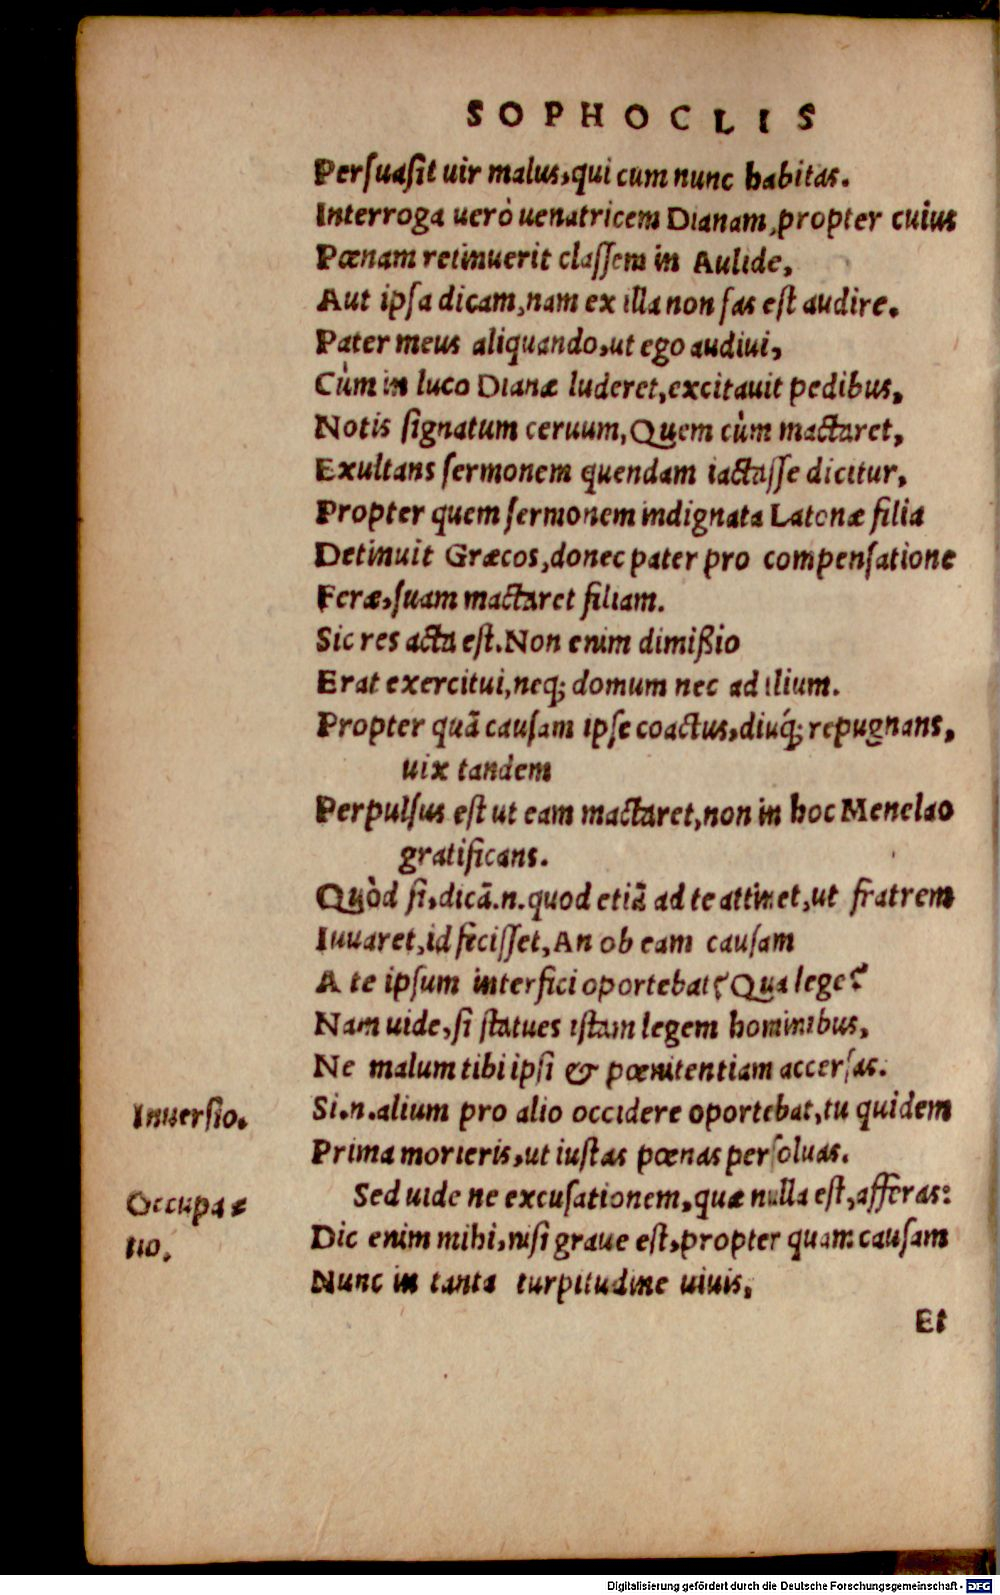 SOPHOCLIS
Persuasit uir malus, qui cum nunc habitas.
Interroga uerò uenatricem Dianam, propter cuius
Pœnam retinuerit classem in Aulide,
Aut ipsa dicam, nam ex illa non fas est audire.
Pater meus aliquando, ut ego audiui,
Cùm in luco Dianæ luderet, excitauit pedibus,
Notis signatum ceruum, Quem cùm mactaret,
Exultans sermonem quendam iactasse dicitur,
Propter quem sermonem indignata Latonæ filia
Detinuit Græcos, donec pater pro compensatione
Feræ, suam mactaret filiam.
Sic res acta est. Non enim dimißio
Erat exercitui, neq; domum nec ad ilium.
Propter quã causam ipse coactus, diuq́; repugnans,
uix tandem
Perpulsus est ut eam mactaret, non in hoc Menelao
gratificans.
Quòd si, dicã .n. quod etiã ad te attinet, ut fratrem
Iuuaret, id fecisset, An ob eam causam
A te ipsum interfici oportebat? Qua lege?
Nam uide, si statues istam legem hominibus,
Ne malum tibi ipsi & pœnitentiam accersas.
Inuersio. Si .n. alium pro alio occidere oportebat, tu quidem
Prima morieris, ut iustas pœnas persoluas.
Occupa= Sed uide ne excusationem, quæ nulla est, afferas:
tio. Dic enim mihi, nisi graue est, propter quam causam
Nunc in tanta turpitudine uiuis,
Et
Digitalisierung gefördert durch die Deutsche Forschungsgemeinschaft - DFG